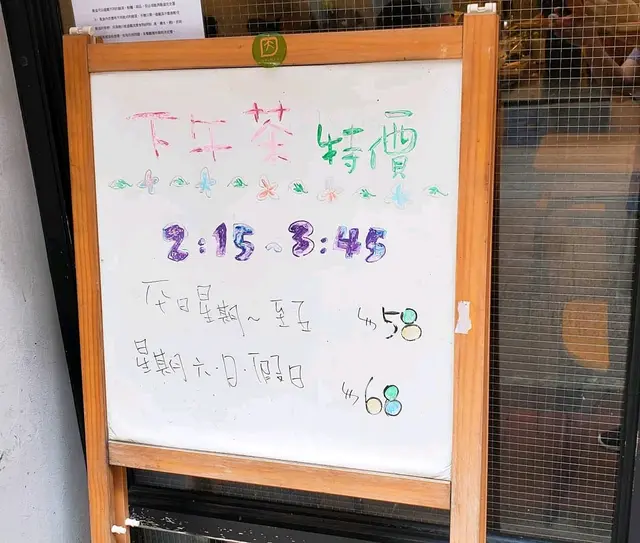 下午茶 特價
2:15~3:45
平日星期一至五 $58
星期六·日·假日 $68